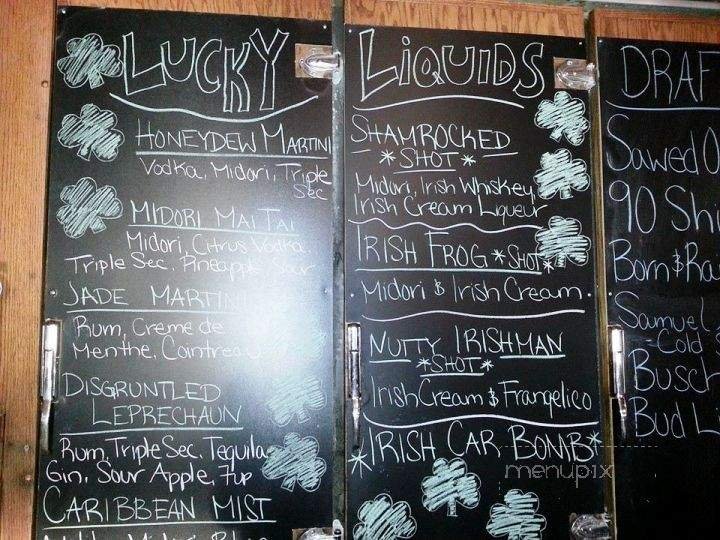 LUCKY
HONEYDEW MARTINI
Vodka, Midori, Triple
Sec
MIDORI MAI TAI
Midori, Citrus Vodka,
Triple Sec, Pineapple
JADE MARTINI
Rum, Creme de
Menthe, Cointreau
DISGRUNTLED
LEPRECHAUN
Rum, Triple Sec, Tequila
Gin, Sour Apple, 7up
CARIBBEAN MIST
LIQUIDS
SHAMROCKED
*SHOT*
Midori, Irish Whiskey,
Irish Cream Liqueur
IRISH FROG *SHOT*
Midori & Irish Cream
NUTTY IRISHMAN
*SHOT*
Irish Cream & Frangelico
*IRISH CAR BOMB*
DRAF
Sawed O
90 Shi
Born & Ra
Samuel
Cold
Busch
Bud L
menupix